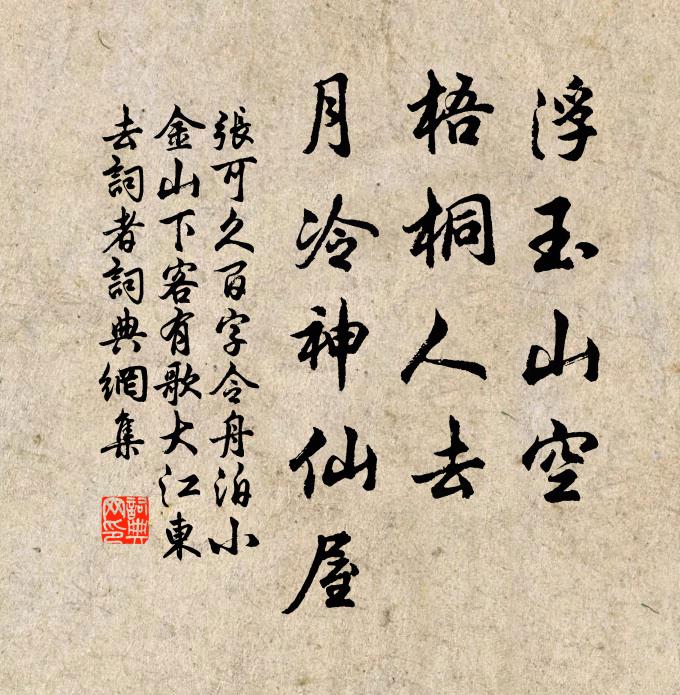 浮玉山空
梧桐人去
月冷神仙屋
張可久百字令舟泊小
金山下客有歌大江東
去詞者詞典網集
詞典
网印